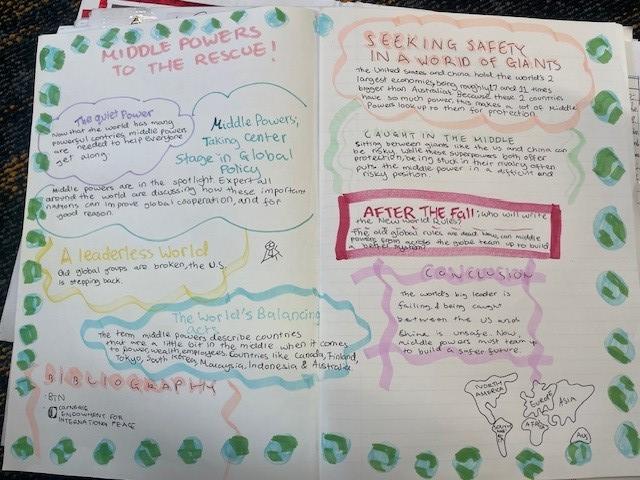 MIDDLE POWERS
TO THE RESCUE!
The Quiet Power
Now that the world has many
powerful contries, middle powers
are needed to help everyone
get along.
Middle Powers;
Taking center
Stage in Global
Policy
Middle powers are in the spotlight. Expert all
around the world are discussing how these important
nations can improve global cooperation, and for
good reason.
A leaderless World
Our global groups are broken, the U.S.
is stepping back.
The World's Balancing
acts
The term middle powers describe countries
that are a little bit in the middle when it comes
to power, wealth, employees. Countries like Canada, Finland,
Tokyo, South Korea, Malaysia, Indonesia & Australia.
BIBLIOGRAPHY
- BTN
- CARNEGIE
ENDOWMENT FOR
INTERNATIONAL PEACE
SEEKING SAFETY
IN A WORLD OF GIANTS
The United States and China hold the world's 2
largest economies, being roughly 17 and 11 times
bigger than Australia's. Because these 2 countries
have so much power, this makes a lot of Middle
Powers look up to them for protection.
CAUGHT IN THE MIDDLE
Sitting between giants like the US and China can
be risky. While these superpowers both offer
protection, being stuck in their rivalry often
puts the middle power in a difficult and
risky position.
AFTER THE Fall; who will write
the New World Rules?
The old global rules are dead. Now, can middle
powers from across the globe team up to build
a better system?
CONCLUSION
The world's big leader is
failing, & being caught
between the US and
China is unsafe. Now,
middle powers must team up
to build a safer future.
NORTH
AMERICA
EUROPE
ASIA
AFRICA
SOUTH
AUS